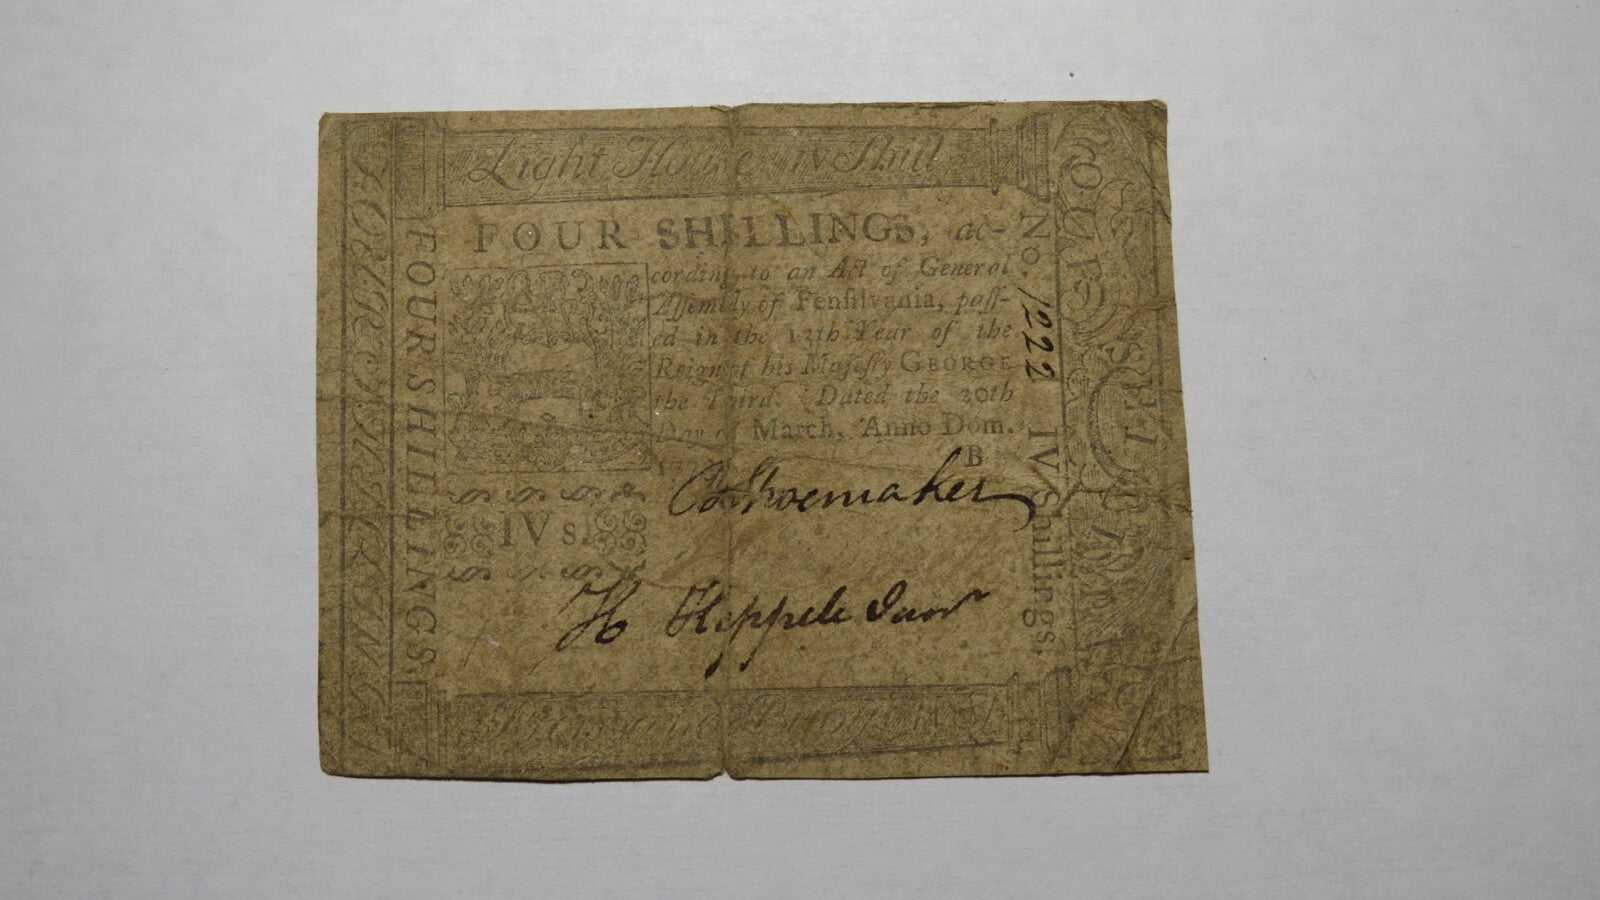 Light House IV Shill
FOUR SHILLINGS, ac-
cording to an Act of General
Assembly of Pensilvania, pass-
ed in the 13th Year of the
Reign of his Majesty GEORGE
the Third. Dated the 20th
Day of March, Anno Dom.
B
IV s.
C Shoemaker
H Keppele Junr
FOUR SHILLINGS
FOUR SHILLINGS.
No. 1222 IV Shillings.
FOUR SHILL